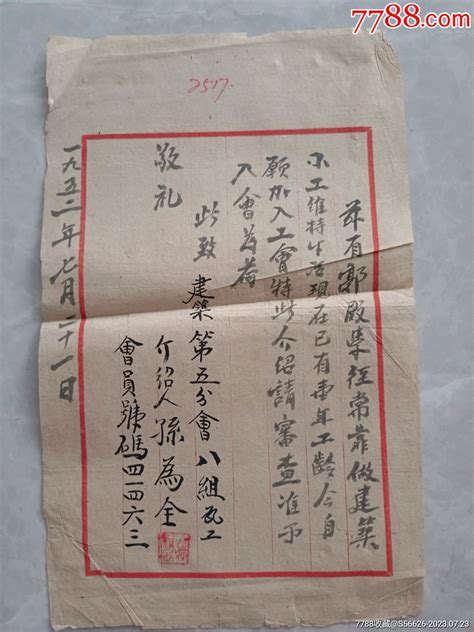 7788.com
2517.
兹有郭殿集经常靠做建築
小工維持生活現在已有壹年工齡今自
願加入工會特此介紹請審查准予
入會為荷
此致
敬礼
建築第五分會八組瓦工
介绍人孫為全
會員號碼四一四六三
一九五二年七月二十一日
7788收藏@S56626-2023.07.23